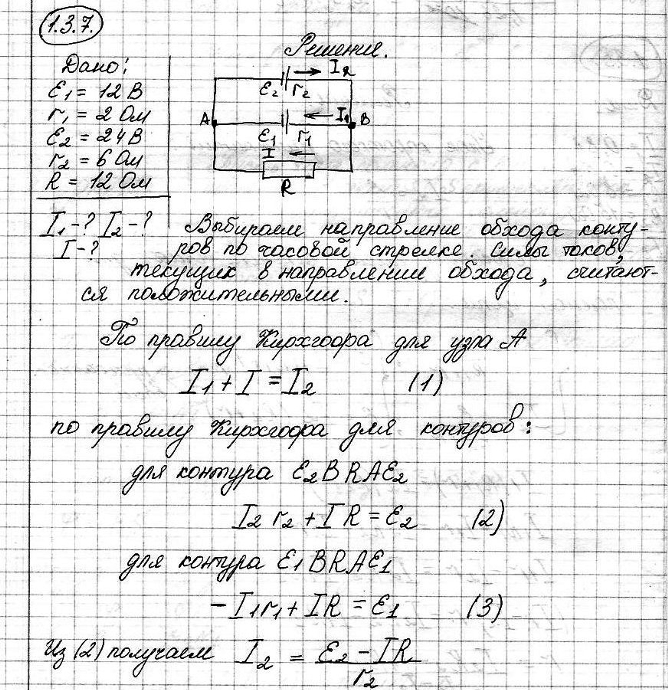 1.3.7.
Решение.
Дано:
Ɛ1 = 12 В
r1 = 2 Ом
Ɛ2 = 24 В
r2 = 6 Ом
R = 12 Ом
I1 - ? I2 - ?
I - ?
I2
Ɛ2 r2
A
B
I1
Ɛ1 r1
I
R
Выбираем направление обхода конту-
ров по часовой стрелке. Силы токов,
текущих в направлении обхода, считают-
ся положительными.
По правилу Кирхгофа для узла А
I1 + I = I2 (1)
по правилу Кирхгофа для контуров:
для контура Ɛ2BRAƐ2
I2 r2 + IR = Ɛ2 (2)
для контура Ɛ1BRAƐ1
-I1r1 + IR = Ɛ1 (3)
Из (2) получаем I2 = (Ɛ2 - IR) / r2